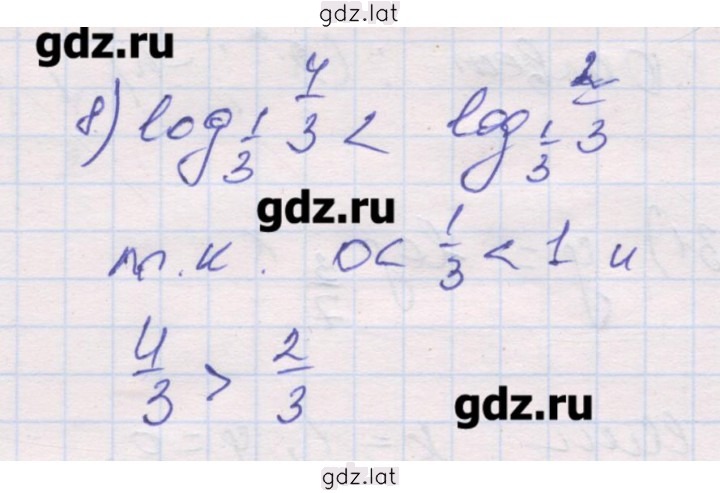 gdz.lat
gdz.ru
8) log_{1/3} 4/3 < log_{1/3} 2/3
gdz.ru
т.к. 0 < 1/3 < 1 и
4/3 > 2/3
gdz.ru
gdz.lat